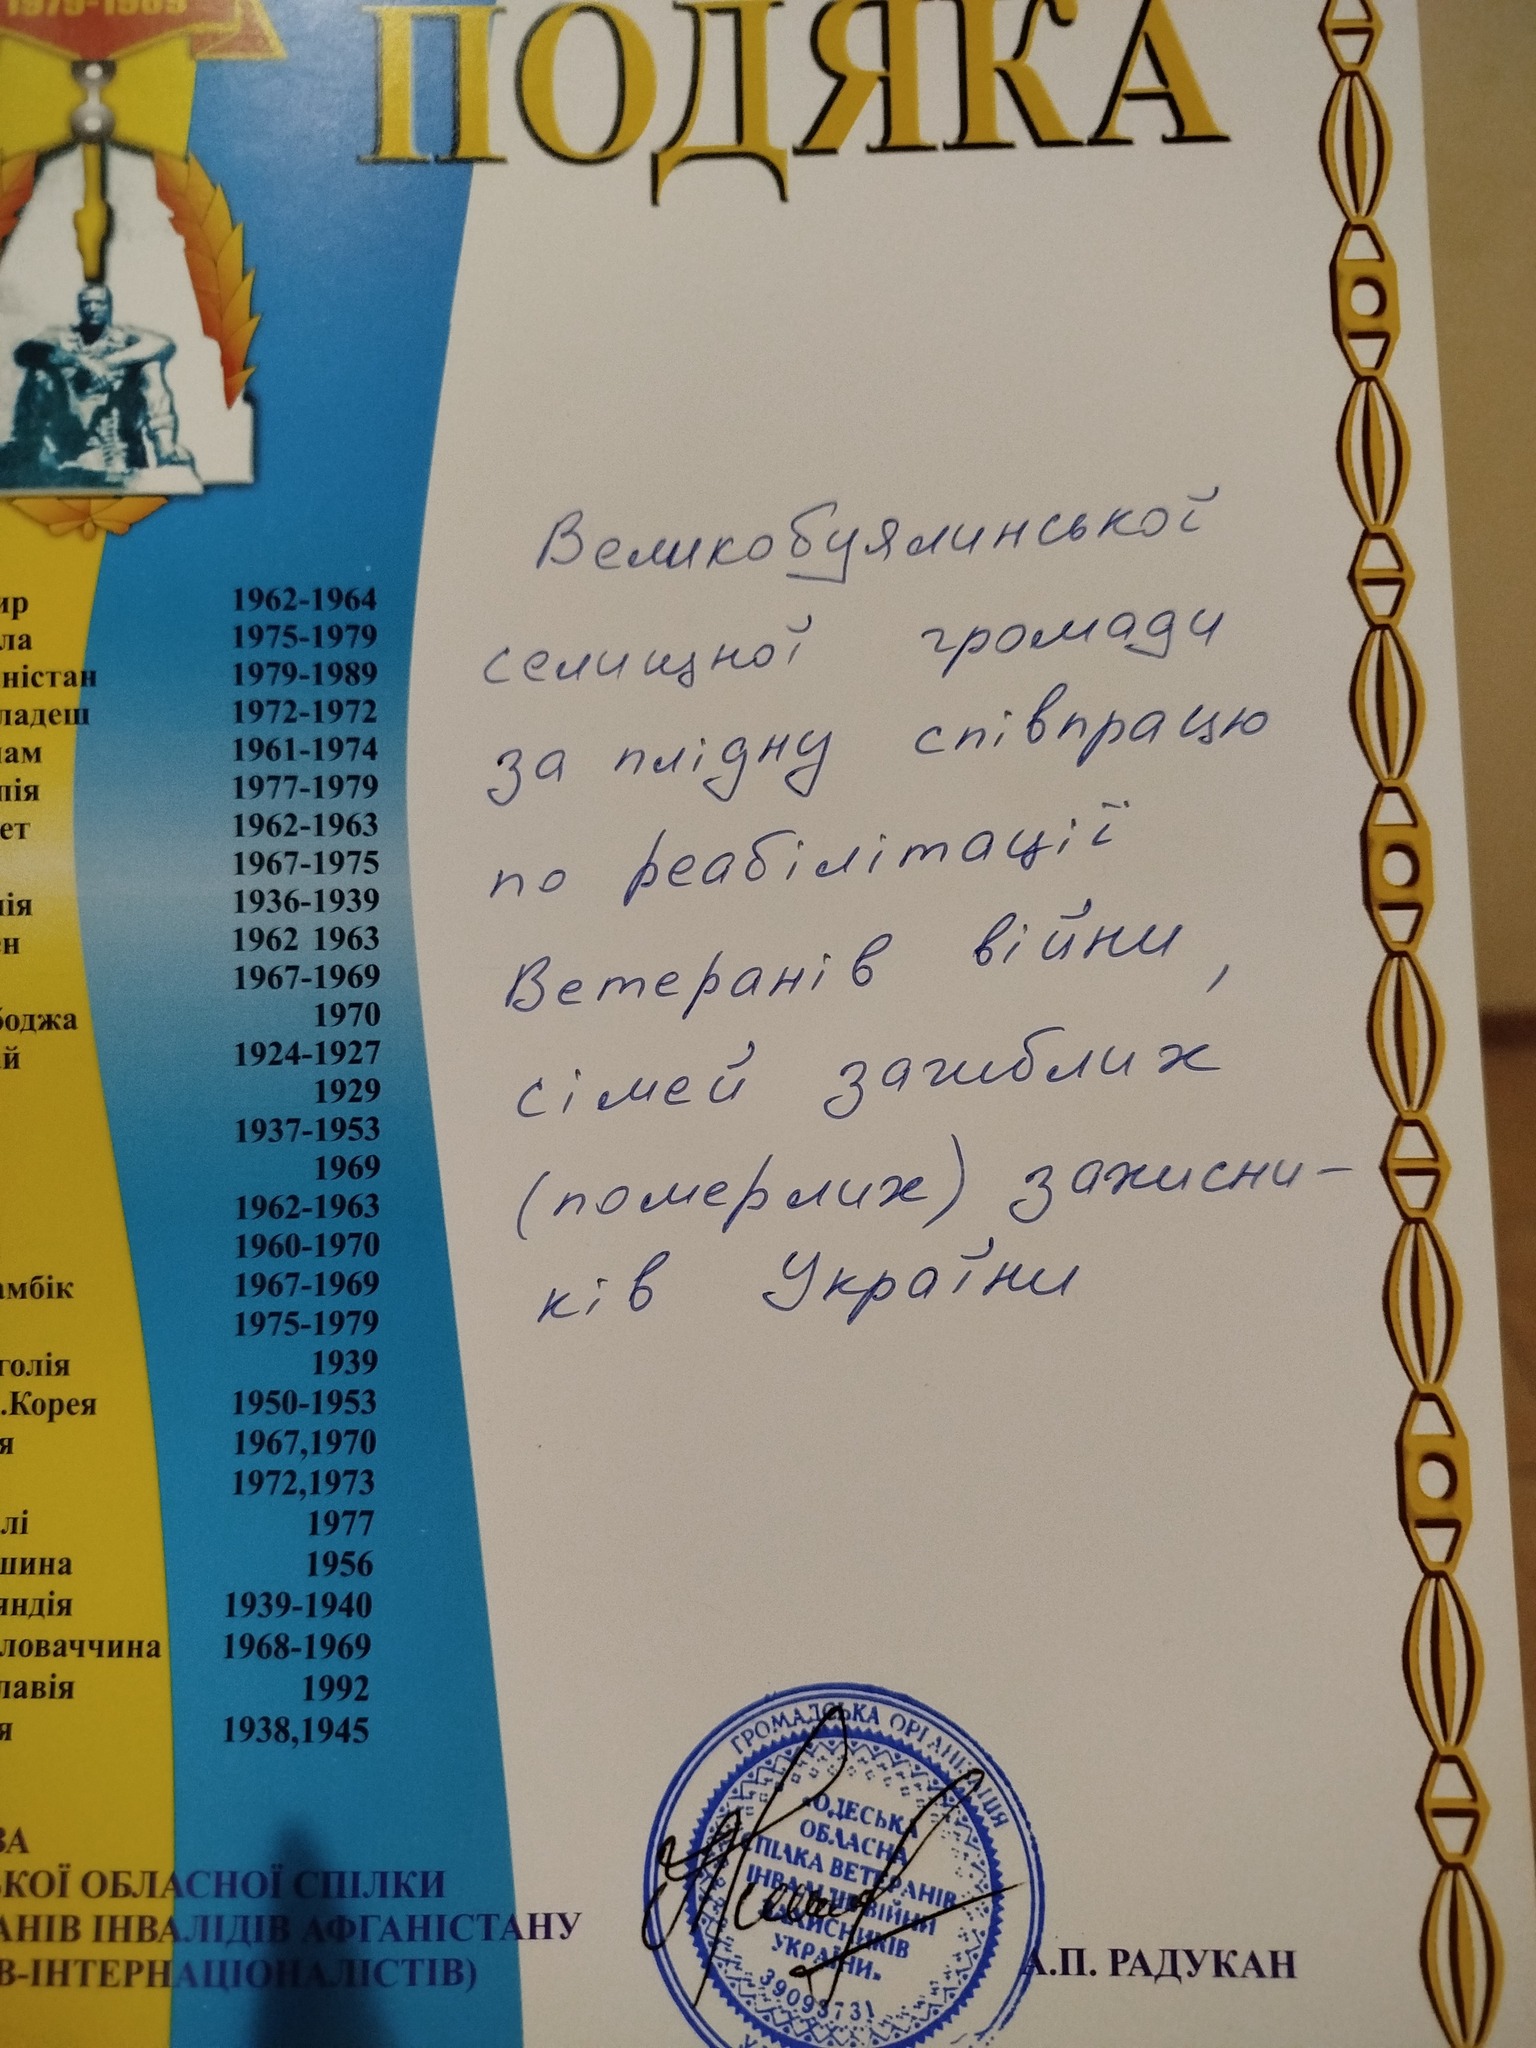 1979-1989
ПОДЯКА
Великобуялинської
селищної громади
за плідну співпрацю
по реабілітації
Ветеранів війни,
сімей загиблих
(померлих) захисни-
ків України
ир 1962-1964
ла 1975-1979
ністан 1979-1989
ладеш 1972-1972
нам 1961-1974
пія 1977-1979
ет 1962-1963
1967-1975
нія 1936-1939
ен 1962 1963
1967-1969
боджа 1970
ай 1924-1927
1929
1937-1953
1969
1962-1963
1960-1970
амбік 1967-1969
1975-1979
голія 1939
.Корея 1950-1953
я 1967,1970
1972,1973
лі 1977
шина 1956
яндія 1939-1940
ловаччина 1968-1969
лавія 1992
я 1938,1945
ВА
ЬКОЇ ОБЛАСНОЇ СПІЛКИ
АНІВ ІНВАЛІДІВ АФГАНІСТАНУ
В-ІНТЕРНАЦІОНАЛІСТІВ)
А.П. РАДУКАН
ГРОМАДСЬКА ОРГАНІЗАЦІЯ
«ОДЕСЬКА
ОБЛАСНА
СПІЛКА ВЕТЕРАНІВ
ІНВАЛІДІВ ВІЙНИ
ЗАХИСНИКІВ
УКРАЇНИ»
39093731